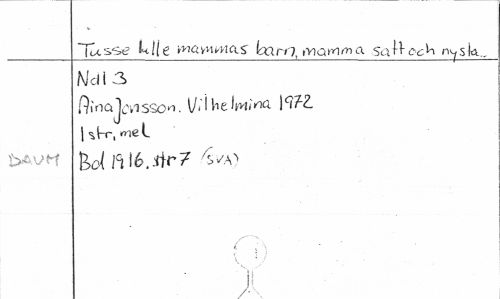 Tusse lille mammas barn, mamma satt och nysta...
Ndl 3
Aina Jonsson. Vilhelmina 1972
1 str, mel
DAUM Bd 1916. str 7 (SVA)